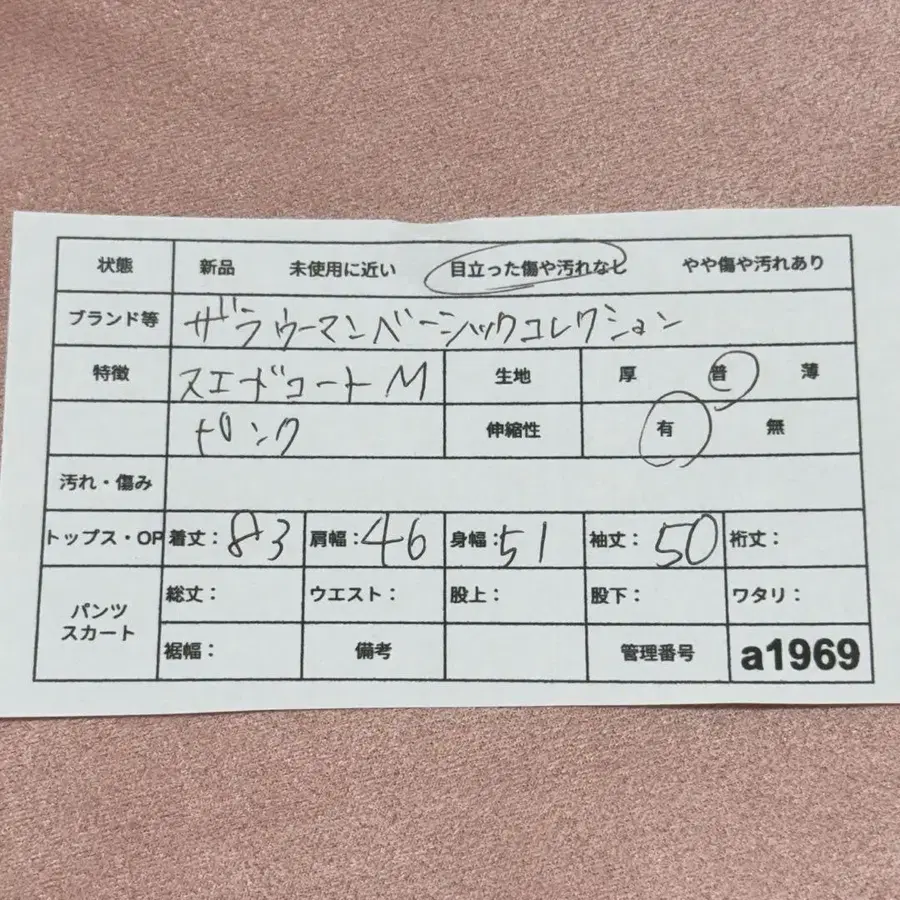 状態 新品 未使用に近い 目立った傷や汚れなし やや傷や汚れあり
ブランド等 ザラウーマンベーシックコレクション
特徴 スエードコート M 生地 厚 普 薄
ピンク 伸縮性 有 無
汚れ・傷み
トップス・OP 着丈：83 肩幅：46 身幅：51 袖丈：50 裄丈：
パンツ スカート 総丈： ウエスト： 股上： 股下： ワタリ：
裾幅： 備考 管理番号 a1969